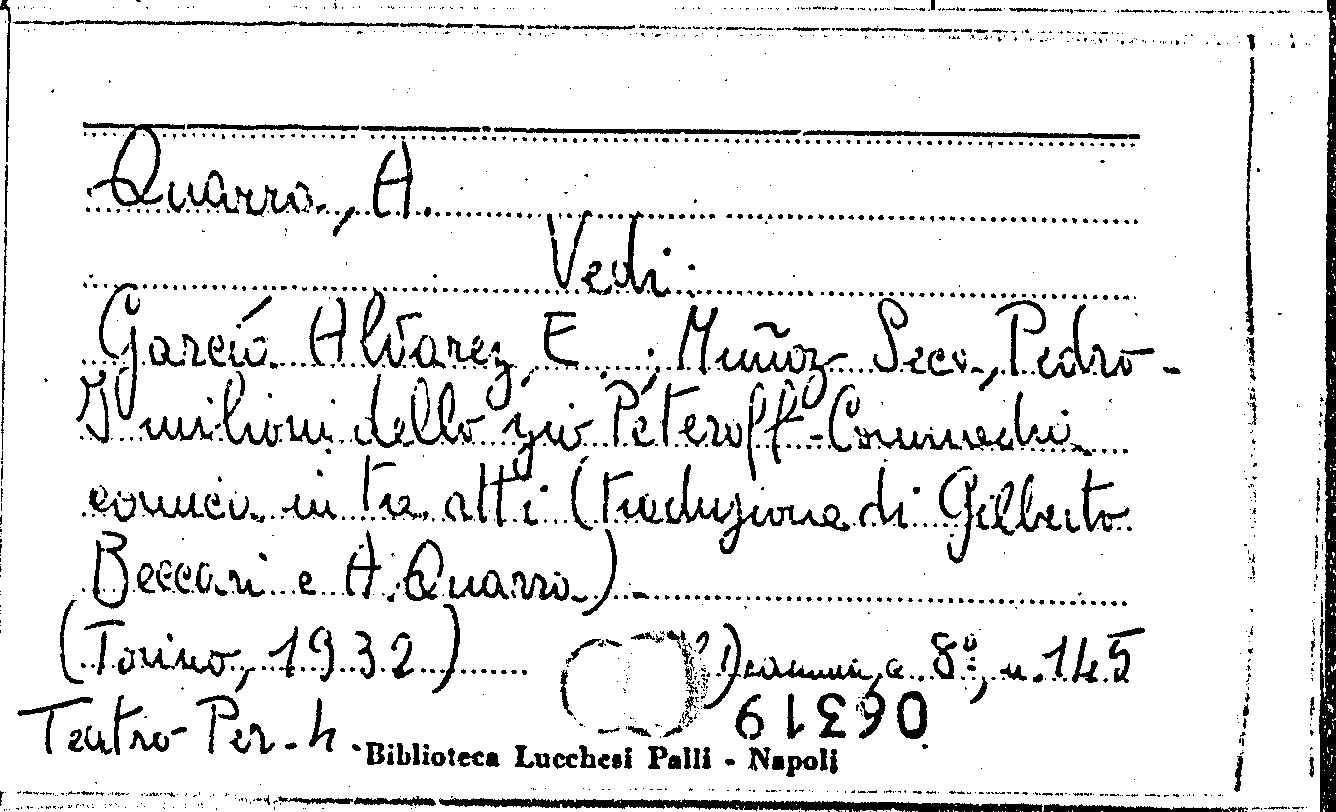 Quarra, A.
Vedi:
García Alvarez, E. ; Muñoz Seco, Pedro -
I milioni dello zio Péteroff - Commedia
comica in tre atti (traduzione di Gilberto
Beccari e A. Quarra) -
(Torino, 1932)
Dramma, a 8º, n. 145
06319
Teatro Per. 4
Biblioteca Lucchesi Palli - Napoli